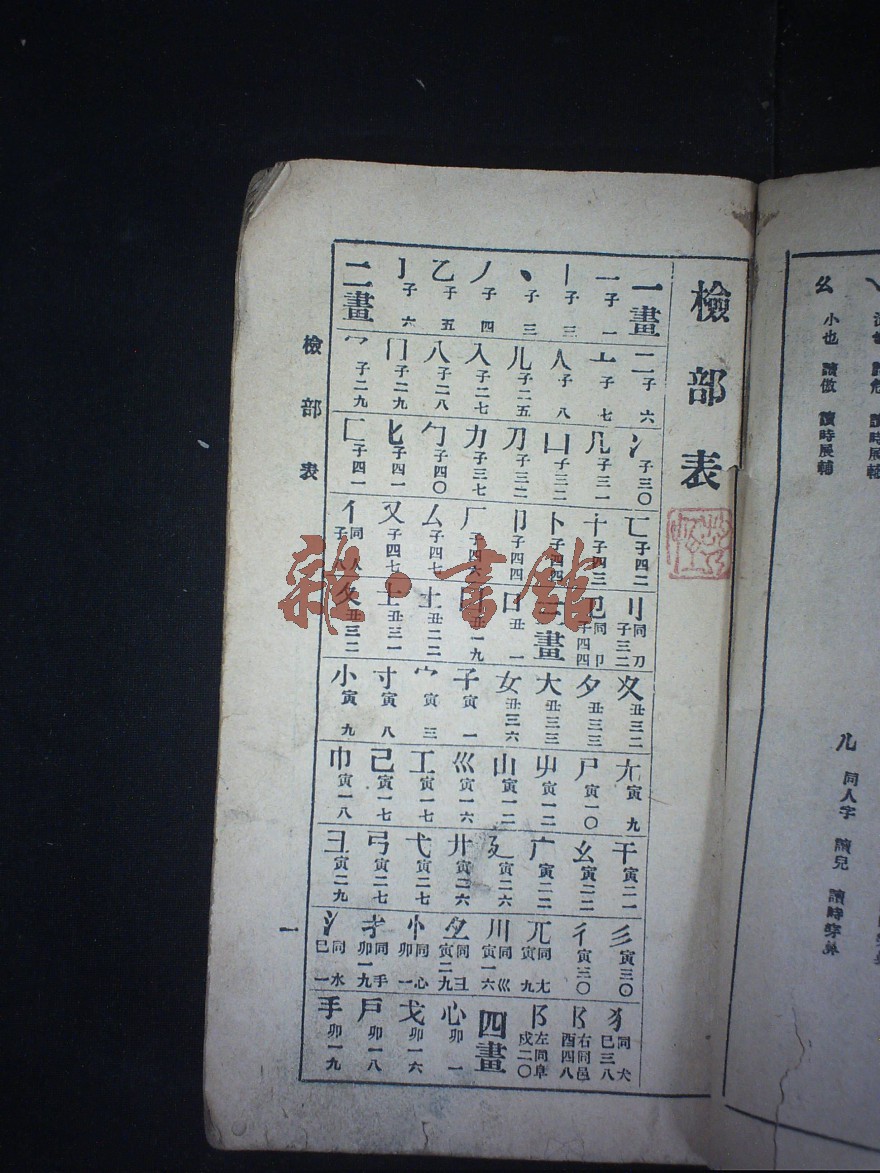 檢部表
一畫 一子一 丨子三 丶子三 丿子四 乙子五 亅子六 二畫
二子六 亠子七 人子八 儿子二五 入子二七 八子二八 冂子二九 冖子二九
冫子三〇 几子三一 凵子三二 刀子三二 力子三七 勹子四〇 匕子四一 匚子四一
匸子四二 十子四三 卜子四四 卩子四四 厂子四六 厶子四七 又子四七 亻同人子八
刂同刀子三二 㔾同卩子四四 三畫 口丑一 囗丑一九 土丑二二 士丑三一 夂丑三二
夊丑三二 夕丑三三 大丑三三 女丑三六 子寅一 宀寅三 寸寅八 小寅九
尢寅九 尸寅一〇 屮寅一二 山寅一二 巛寅一六 工寅一七 己寅一七 巾寅一八
干寅二一 幺寅二二 广寅二二 廴寅二六 廾寅二六 弋寅二七 弓寅二七 彐寅二九
彡寅三〇 彳寅三〇 兀同尢寅九 川同巛寅一六 彑同彐寅二九 忄同心卯一 扌同手卯一九 氵同水巳一
犭同犬巳三八 阝右同邑酉四八 阝左同阜戌二〇 四畫 心卯一 戈卯一六 戶卯一八 手卯一九
檢部表
一
雜·書館
幺 小也 讀傲 讀時展輔
讀時展輔
儿 同人字 讀兒